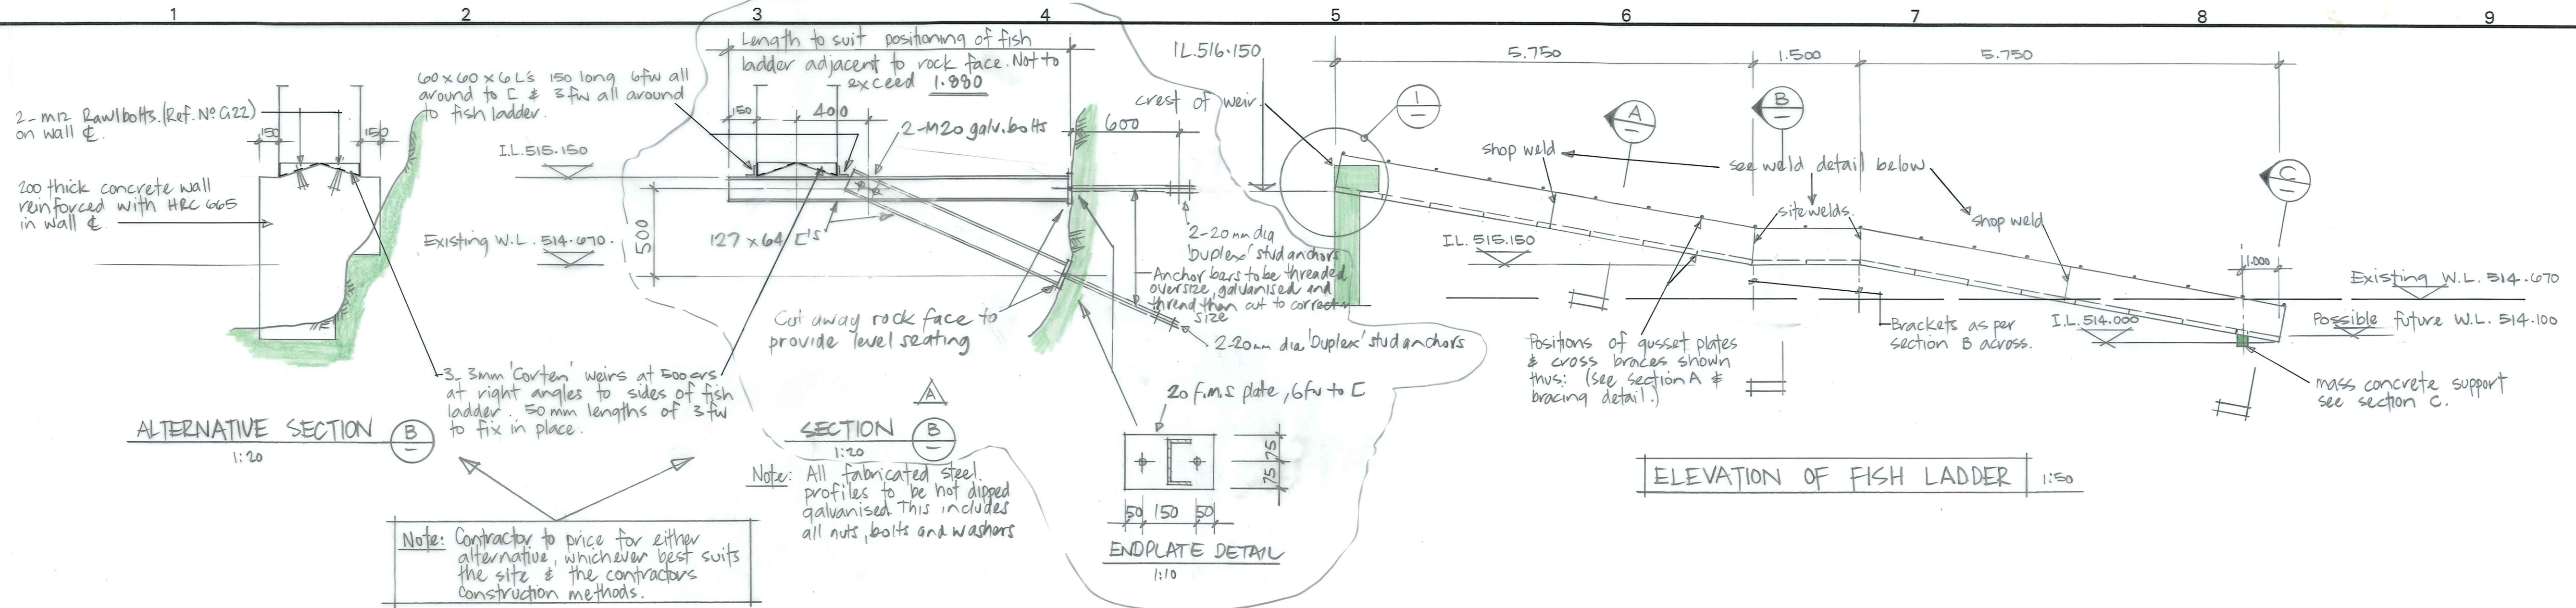 1 2 3 4 5 6 7 8 9
2-M12 Rawlbolts.(Ref. No G22)
on wall ℄.
150
150
200 thick concrete wall
reinforced with HRC 665
in wall ℄
ALTERNATIVE SECTION
B
1:20
60×60×6 L's 150 long 6fw all
around to [ & 3fw all around
to fish ladder.
I.L.515.150
Existing W.L. 514.670.
3_ 3mm 'Corten' weirs at 500 crs
at right angles to sides of fish
ladder. 50mm lengths of 3fw
to fix in place.
Note: Contractor to price for either
alternative, whichever best suits
the site & the contractors
construction methods.
Length to suit positioning of fish
ladder adjacent to rock face. Not to
exceed 1.880
150
400
2-M20 galv. bolts
600
500
127 × 64 ['s
2-20mm dia
'Duplex' stud anchors
Anchor bars to be threaded
oversize, galvanised and
thread then cut to correct
size
2-20mm dia 'Duplex' stud anchors
Cut away rock face to
provide level seating
A
SECTION
B
1:20
Note: All fabricated steel
profiles to be hot dipped
galvanised This includes
all nuts, bolts and washers
20 f.m.s plate, 6fw to [
75 75
50 150 50
ENDPLATE DETAIL
1:10
IL.516.150
crest of weir
1
5.750
1.500
5.750
A
B
C
shop weld
see weld detail below
site welds.
shop weld
I.L. 515.150
1.000
Existing W.L. 514.670
I.L. 514.000
Possible future W.L. 514.100
Positions of gusset plates
& cross braces shown
thus: (see section A &
bracing detail.)
Brackets as per
section B across.
mass concrete support
see section C.
ELEVATION OF FISH LADDER
1:50